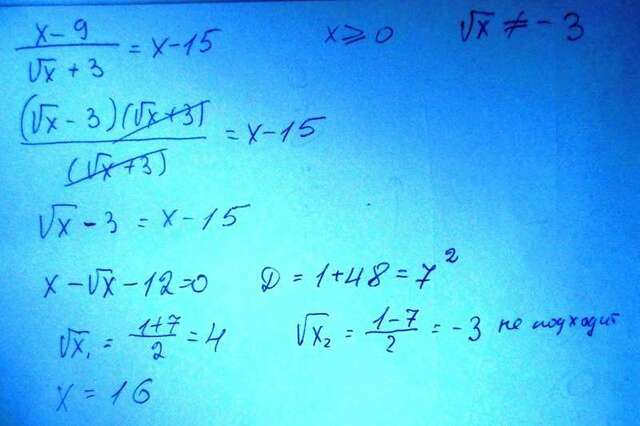 (x-9)/(√x+3) = x-15    x≥0    √x ≠ -3
((√x-3)(√x+3))/((√x+3)) = x-15
√x-3 = x-15
x-√x-12=0    D = 1+48 = 7²
√x₁ = (1+7)/2 = 4    √x₂ = (1-7)/2 = -3 не подходит
x = 16